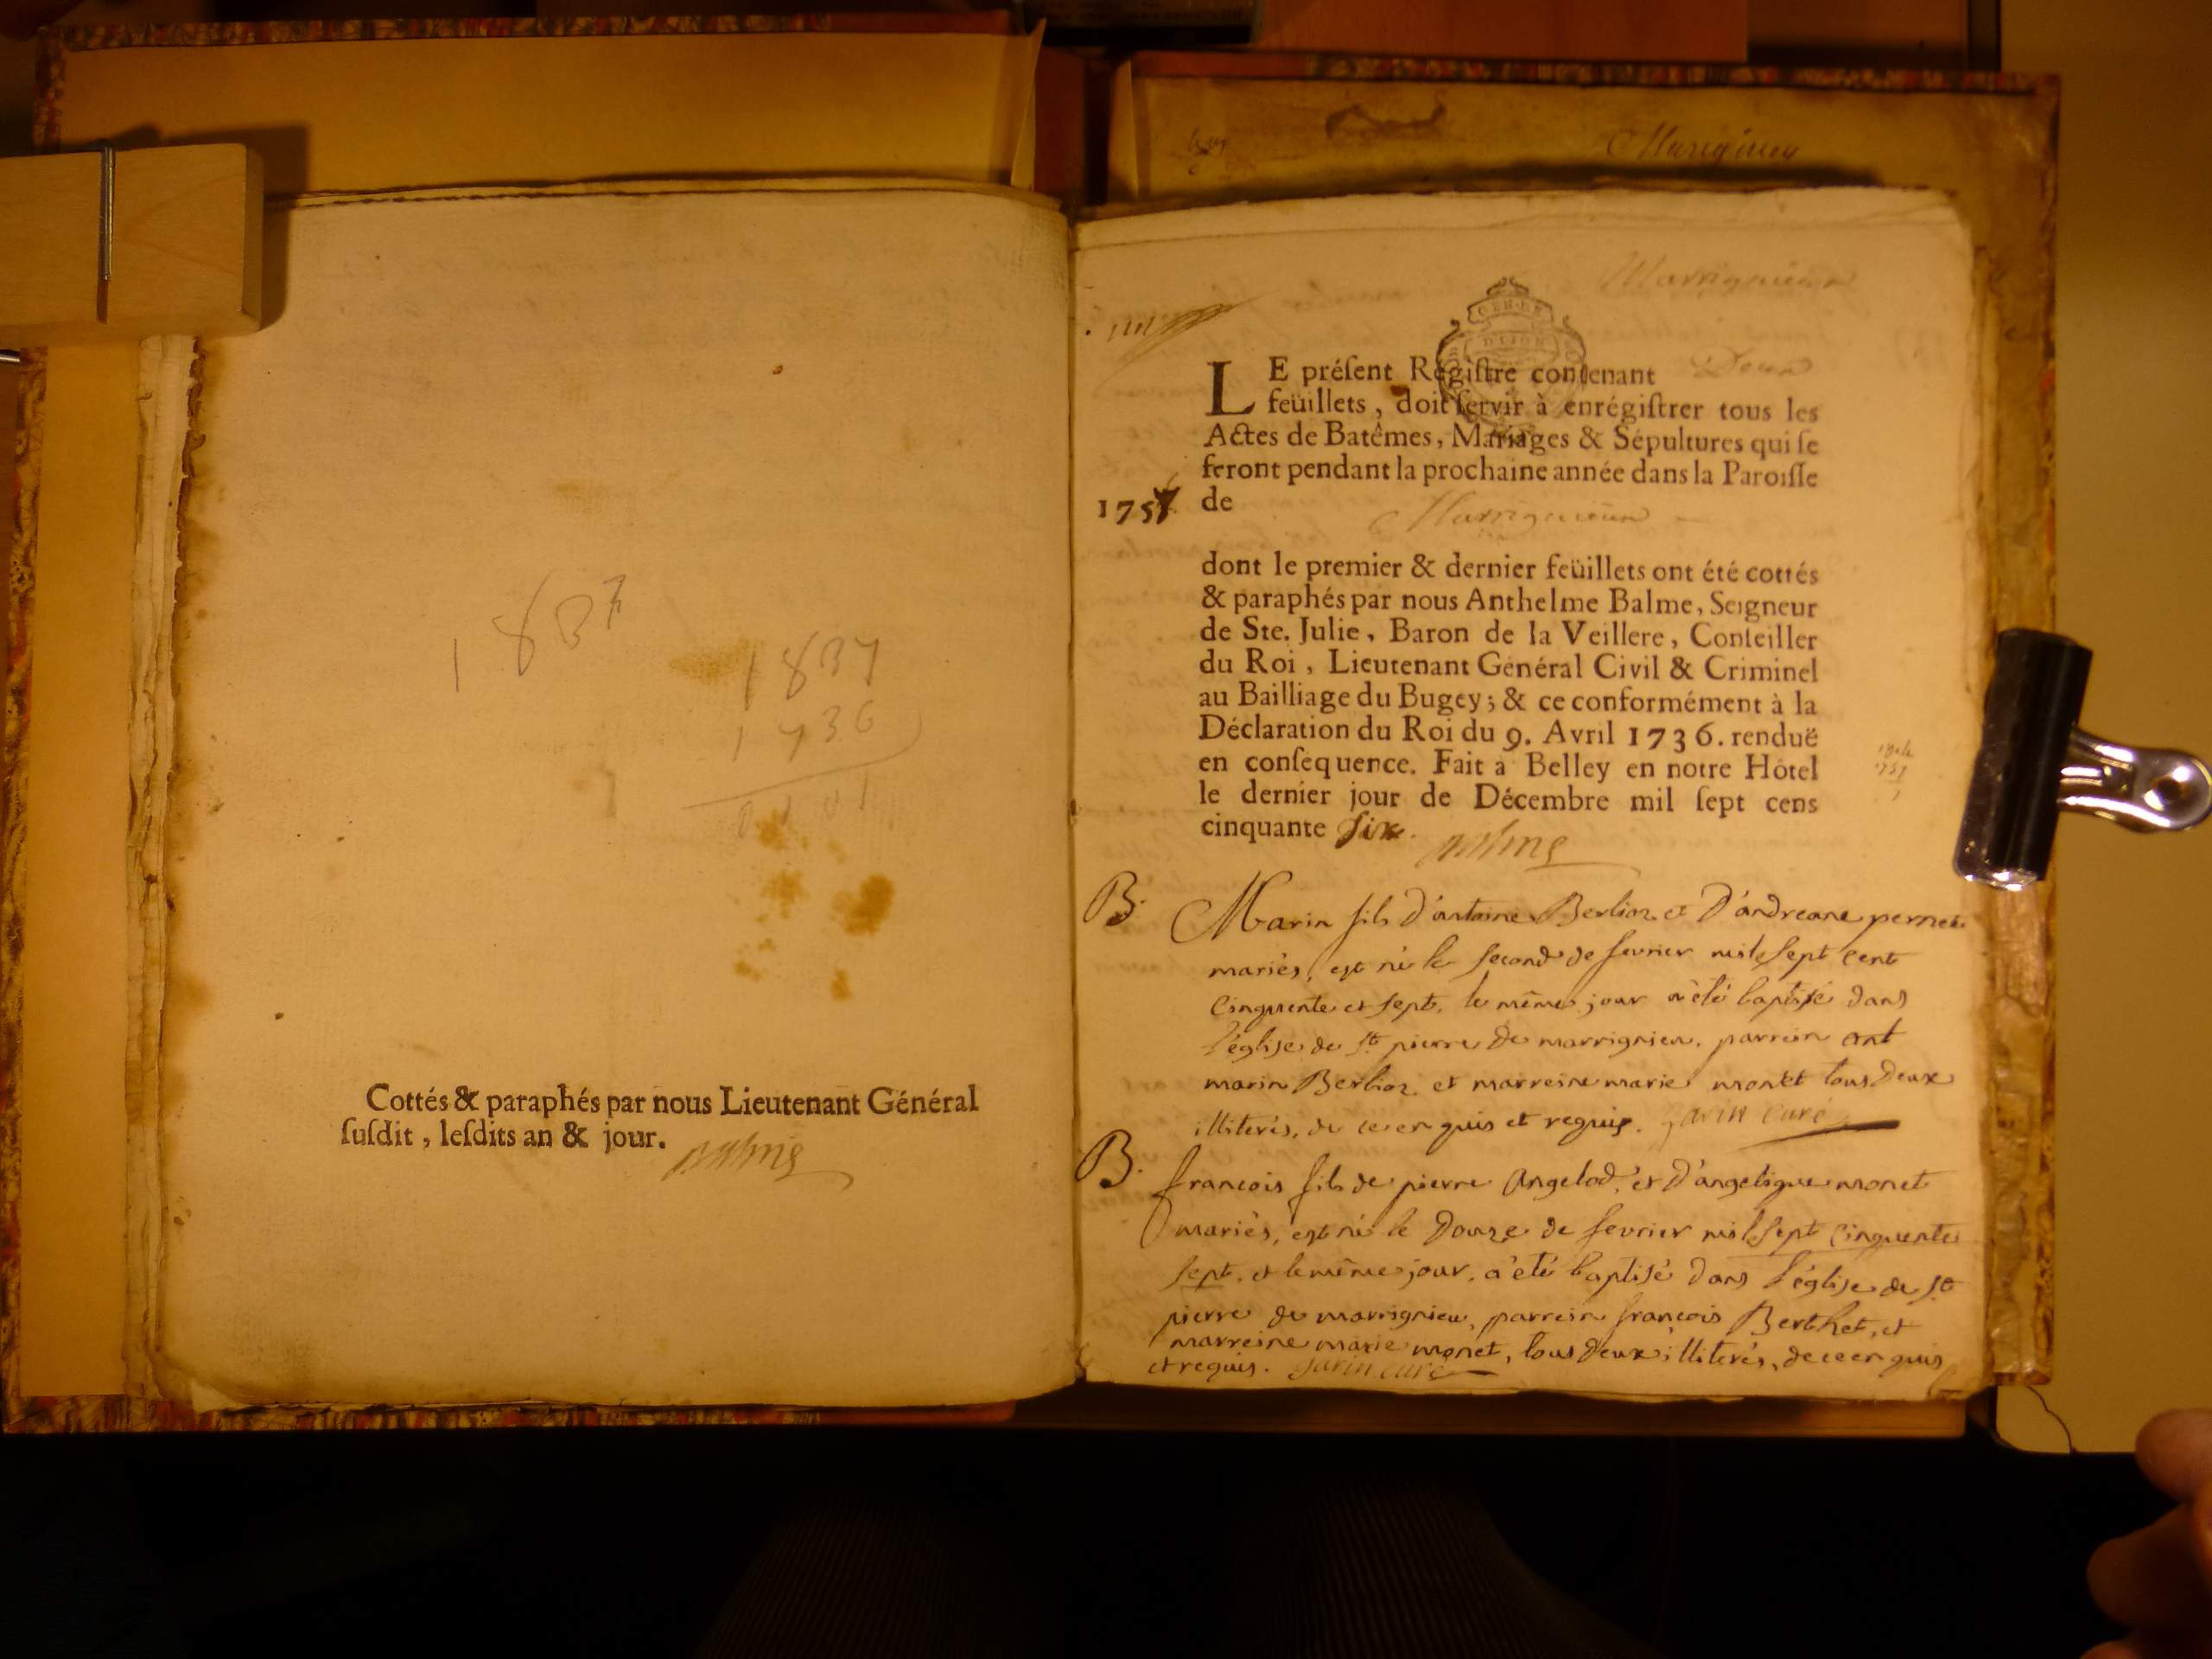 1837
1837
1736
0101
Cottés & paraphés par nous Lieutenant Général
ſuſdit, leſdits an & jour.
Balme
Marrignieu
GEN. DE
DIJON
LE préſent Régiſtre contenant Deux
feüillets, doit ſervir à enrégiſtrer tous les
Actes de Batêmes, Mariages & Sépultures qui ſe
feront pendant la prochaine année dans la Paroiſſe
1757 de Marrignieu
dont le premier & dernier feüillets ont été cottés
& paraphés par nous Anthelme Balme, Seigneur
de Ste. Julie, Baron de la Veillere, Conſeiller
du Roi, Lieutenant Général Civil & Criminel
au Bailliage du Bugey; & ce conformément à la
Déclaration du Roi du 9. Avril 1736. renduë
en conſequence. Fait à Belley en notre Hôtel
le dernier jour de Décembre mil ſept cens
cinquante ſix. Balme
B. Marin fils D'antoine Berlioz et D'andreane pernet
mariés, est né le second de fevrier mil sept cent
Cinquente et sept, le même jour a été baptisé dans
l'église de St pierre de marrignieu. parrein ont
marin Berlioz et marreine marie monet tous Deux
illiterés, de ce enquis et requis. Garin curé
B. francois fils de pierre Angelod, et D'angelique monet
mariés, est né le Douze de fevrier mil sept Cinquente
sept, et le même jour, a été baptisé dans l'église de St
pierre de marrignieu, parrein francois Berthet, et
marreine marie monet, tous deux illiterés, de ce enquis
et requis. Garin curé